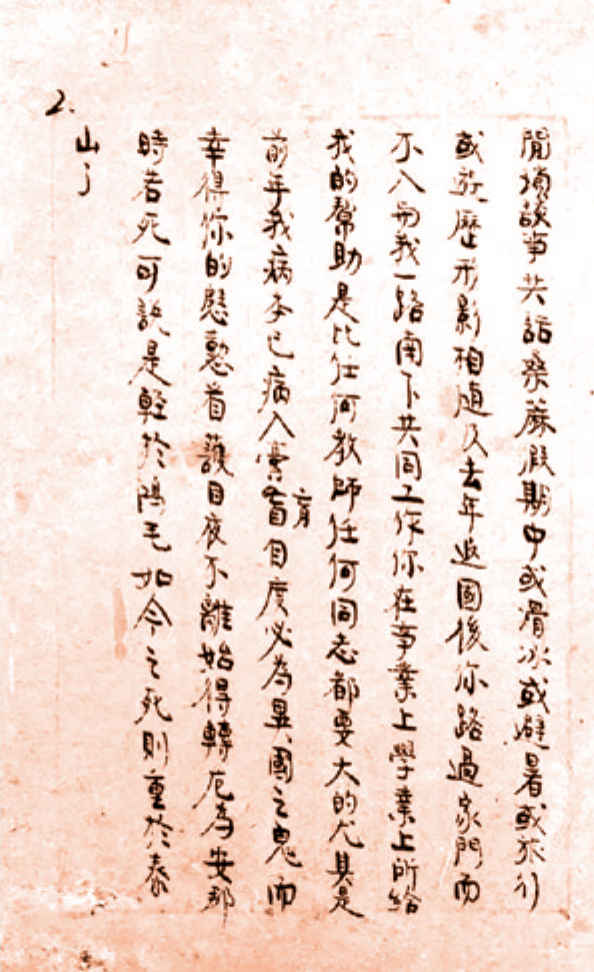 閒埔談事共話桑蔴假期中或滑冰或避暑或旅行
或遊歷形影相隨及去年返國後你路過家門而
不入与我一路南下共同工作你在事業上學業上所給
我的幫助是比任何教師任何同志都要大的尤其是
前年我病本已病入膏肓自度必為異國之鬼而
幸得你的慰懃看護日夜不離始得轉厄為安那
時若死可說是輕於鴻毛如今之死則重於泰
山了
2.